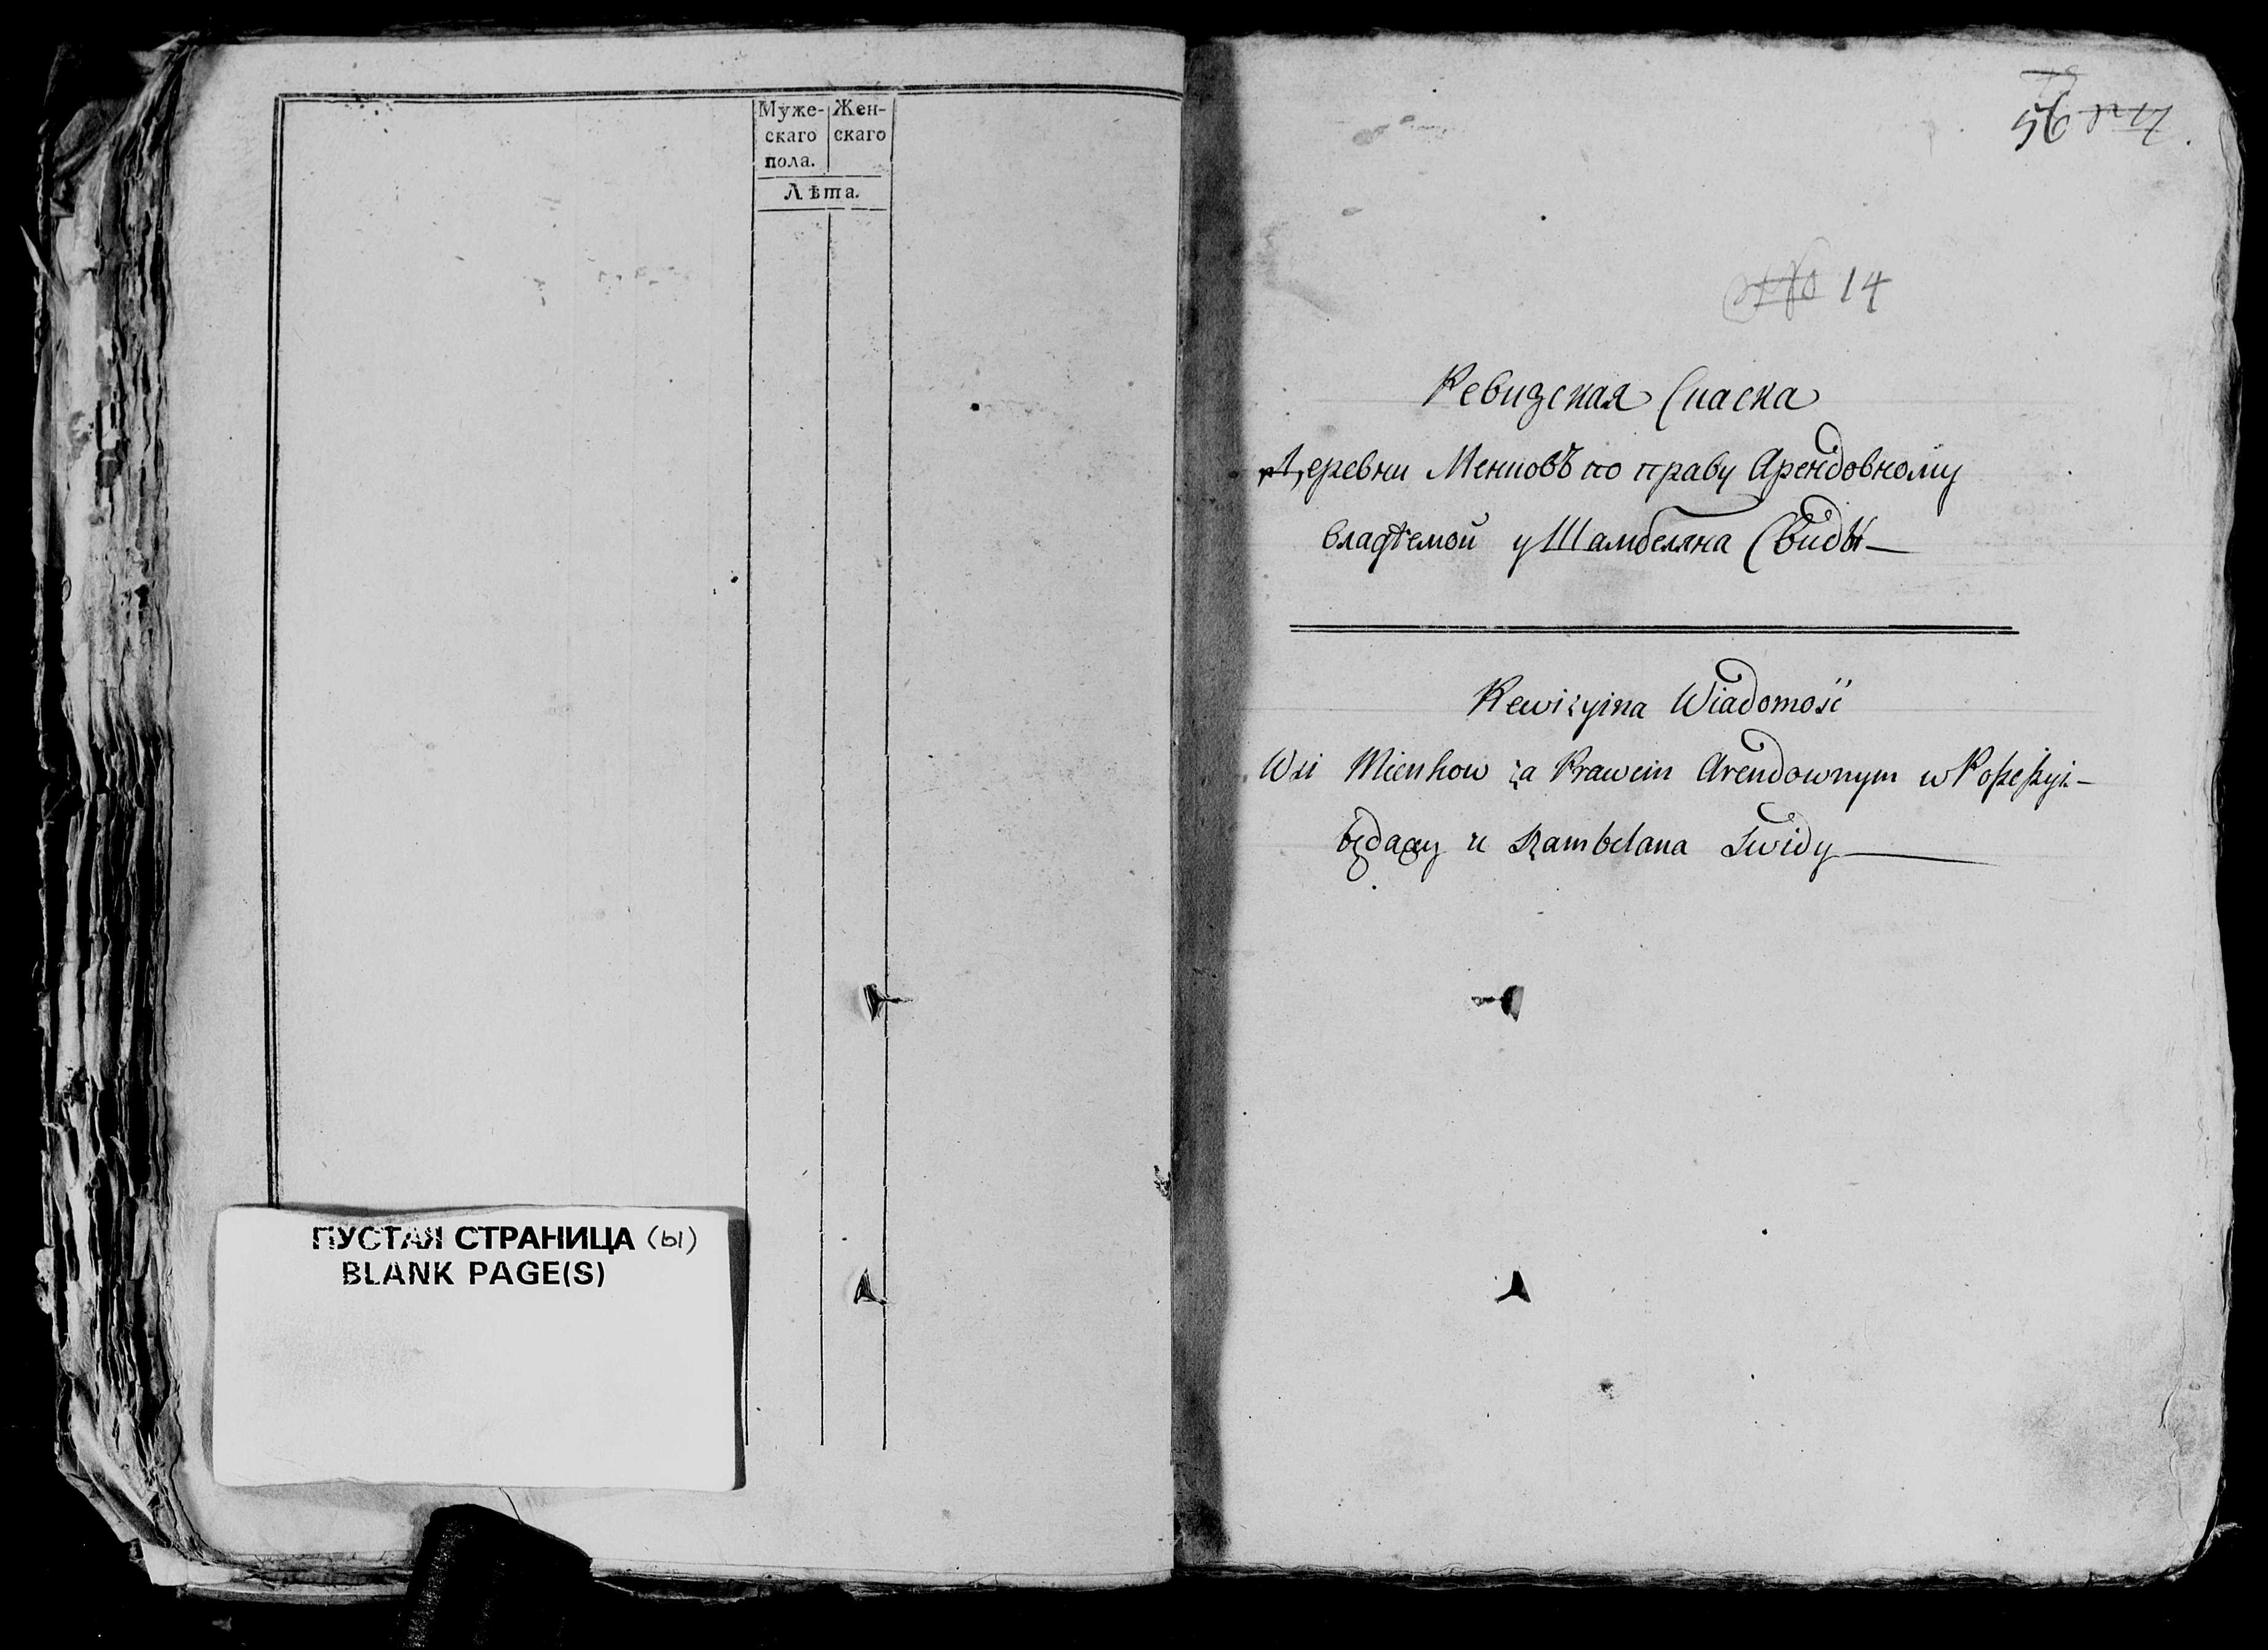 Муже- Жен-
скаго скаго
пола.
Лѣта.
ПУСТАЯ СТРАНИЦА (ы)
BLANK PAGE(S)
56
14
Ревизская Сказка
Деревни Меньковъ по праву Арендовному
владѣемой у Шамбеляна Свиды
Rewizyina Wiadomość
Wsi Mienkow za Prawem Arendownym w Possessyi
będącey u Szambelana Swidy